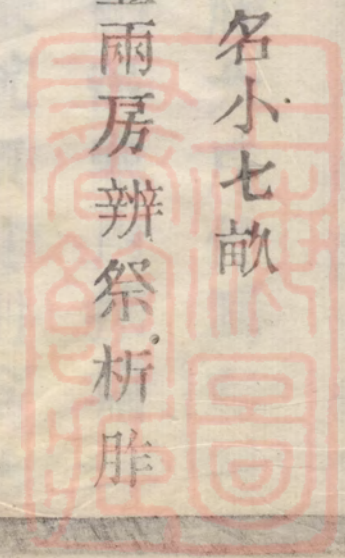 名小七畝
兩房辦祭析胙